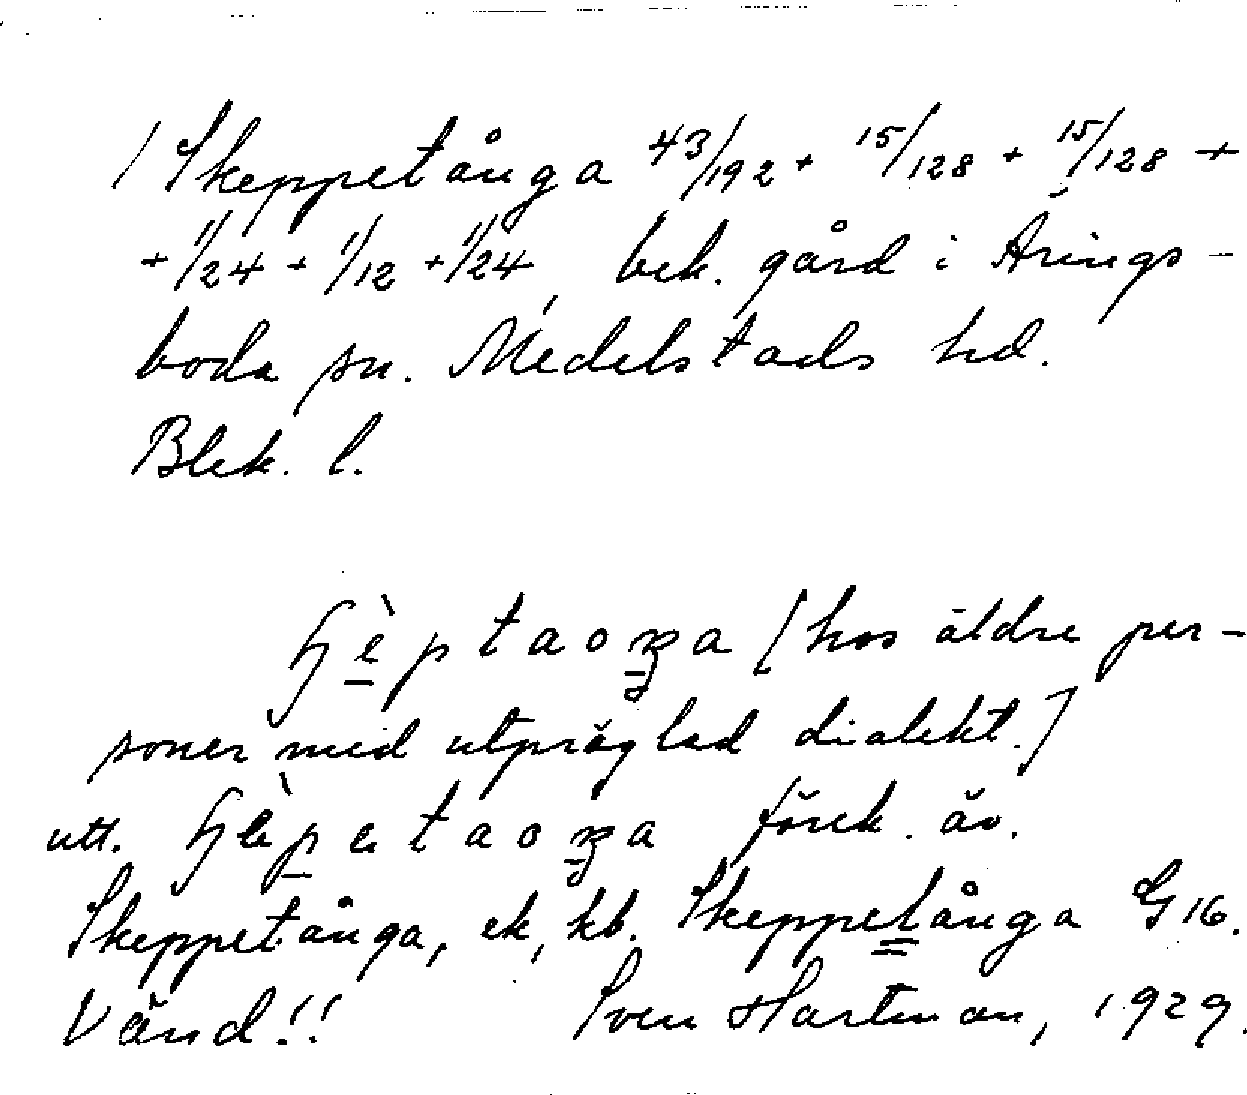 / Skeppetånga 43/192 + 15/128 + 15/128 +
+ 1/24 + 1/12 + 1/24, bek. gård i Årings-
boda sn. Medelstads hd.
Blek. l.
ɧèptaoŋa [hos äldre per-
soner med utpräglad dialekt.]
utt. ɧèpetaoŋa förek. äv.
Skeppetånga, ek, kb. Skeppetånga G 16.
Vänd!! Sven Hartman, 1929.